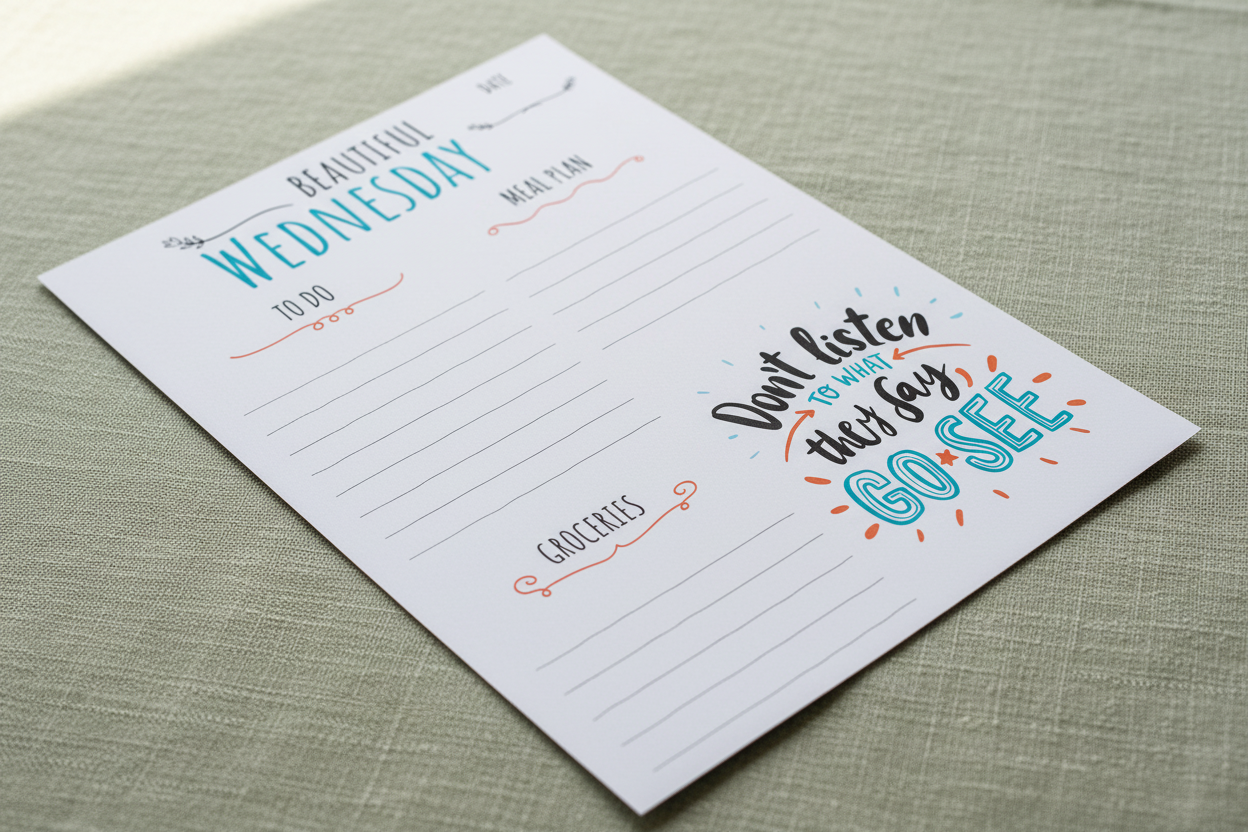 DATE
BEAUTIFUL
WEDNESDAY
TO DO
MEAL PLAN
Don't listen
TO WHAT
they say,
GO SEE
GROCERIES